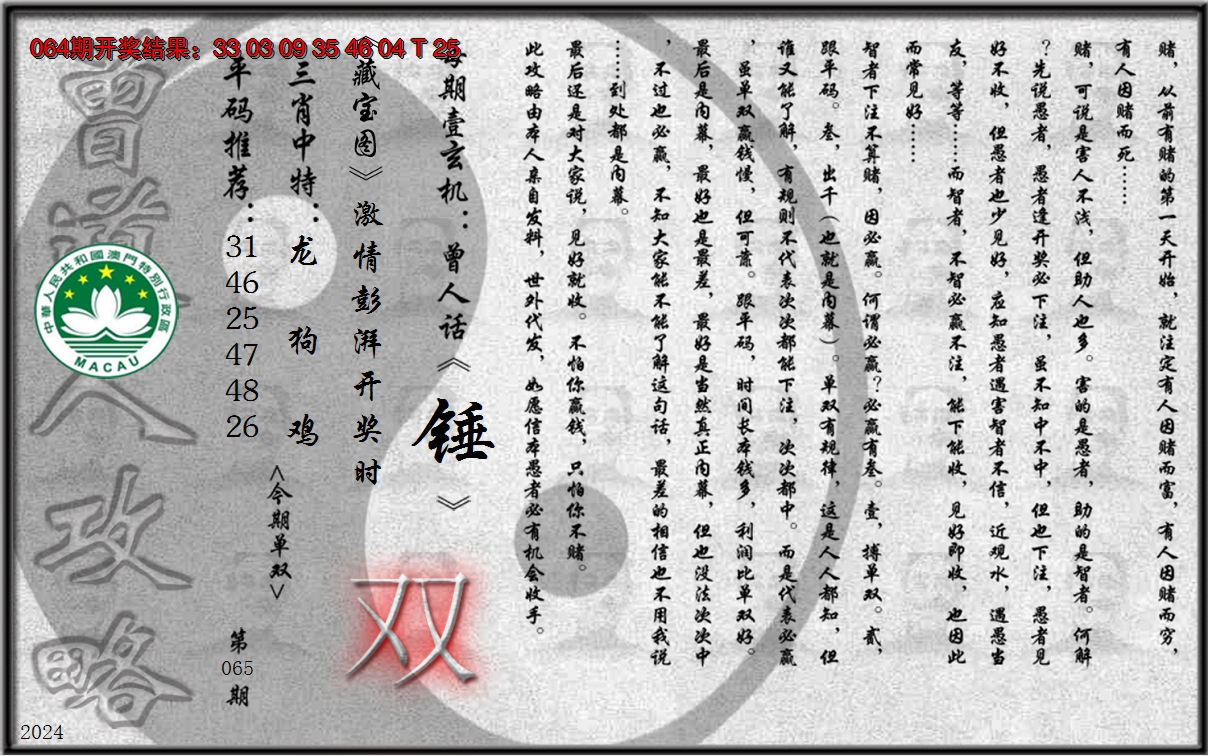 064期开奖结果：33 03 09 35 46 04 T 25
赌，从前有赌的第一天开始，就注定有人因赌而富，有人因赌而穷，
有人因赌而死……
赌，可说是害人不浅，但助人也多。害的是愚者，助的是智者。何解
？先说愚者，愚者逢开奖必下注，虽不知中不中，但也下注，愚者见
好不收，但愚者也少见好，应知愚者遇害智者不信，近观水，遇愚当
友，等等……而智者，不智必赢不注，能下能收，见好即收，也因此
而常见好……
智者下注不算赌，因必赢。何谓必赢？必赢有叁。壹，搏单双。贰，
跟平码。叁，出千（也就是内幕）。单双有规律，这是人人都知，但
谁又能了解，有规则不代表次次都能下注，次次都中。而是代表必赢
，虽单双赢钱慢，但可靠。跟平码，时间长本钱多，利润比单双好。
最后是内幕，最好也是最差，最好是当然真正内幕，但也没法次次中
，不过也必赢，不知大家能不能了解这句话，最差的相信也不用我说
……到处都是内幕。
最后还是对大家说，见好就收。不怕你赢钱，只怕你不赌。
此攻略由本人亲自发料，世外代发，如愿信本愚者必有机会收手。
每期壹玄机：曾人话《锤》
《藏宝图》激情彭湃开奖时
三肖中特：龙 狗 鸡
<今期单双>
双
平码推荐：
31
46
25
47
48
26
第
065
期
曾道人攻略
中華人民共和國澳門特別行政區
MACAU
2024